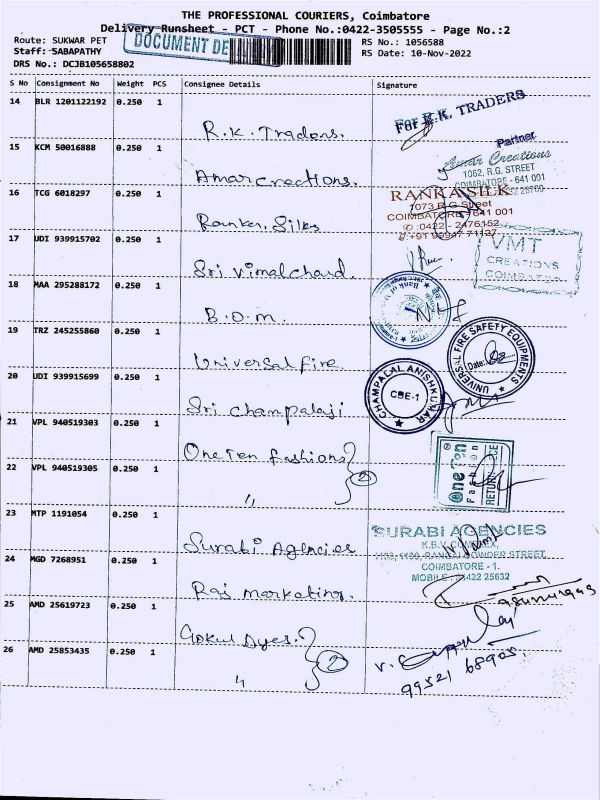 THE PROFESSIONAL COURIERS, Coimbatore
Delivery Runsheet - PCT - Phone No.:0422-3505555 - Page No.:2
Route: SUKWAR PET
DOCUMENT DE
RS No.: 1056588
Staff: SABAPATHY
RS Date: 10-Nov-2022
DRS No.: DCJB105658802
S No Consignment No Weight PCS Consignee Details Signature
14 BLR 1201122192 0.250 1
R.K. Traders.
For R.K. TRADERS
Partner
15 KCM 50016888 0.250 1
Amar Creations.
Amar Creations
1062, R.G. STREET
COIMBATORE - 641 001
16 TCG 6018297 0.250 1
Ranka Silks
RANKA SILK
1073 R G Street
COIMBATORE 641 001
0422 - 2476152
17 UDI 939915702 0.250 1
Sri Vimalchand.
VMT
CREATIONS
COIMBATORE
18 MAA 295288172 0.250 1
B.O.M.
19 TRZ 245255860 0.250 1
Universal fire.
UNIVERSAL FIRE SAFETY EQUIPMENTS
Date:
20 UDI 939915699 0.250 1
Sri Champalaji
CHAMPALAL ANISHKUMAR
CBE-1
21 VPL 940519303 0.250 1
One Ten fashions
22 VPL 940519305 0.250 1
"
2
One Ten
Fashion
23 MTP 1191054 0.250 1
Surabi Agencies
SURABI AGENCIES
K.B.V. COMPLEX,
COIMBATORE - 1.
24 MGD 7268951 0.250 1
Raj marketing.
25 AMD 25619723 0.250 1
Gokul Dyes.
26 AMD 25853435 0.250 1
"
2
99521 68905.